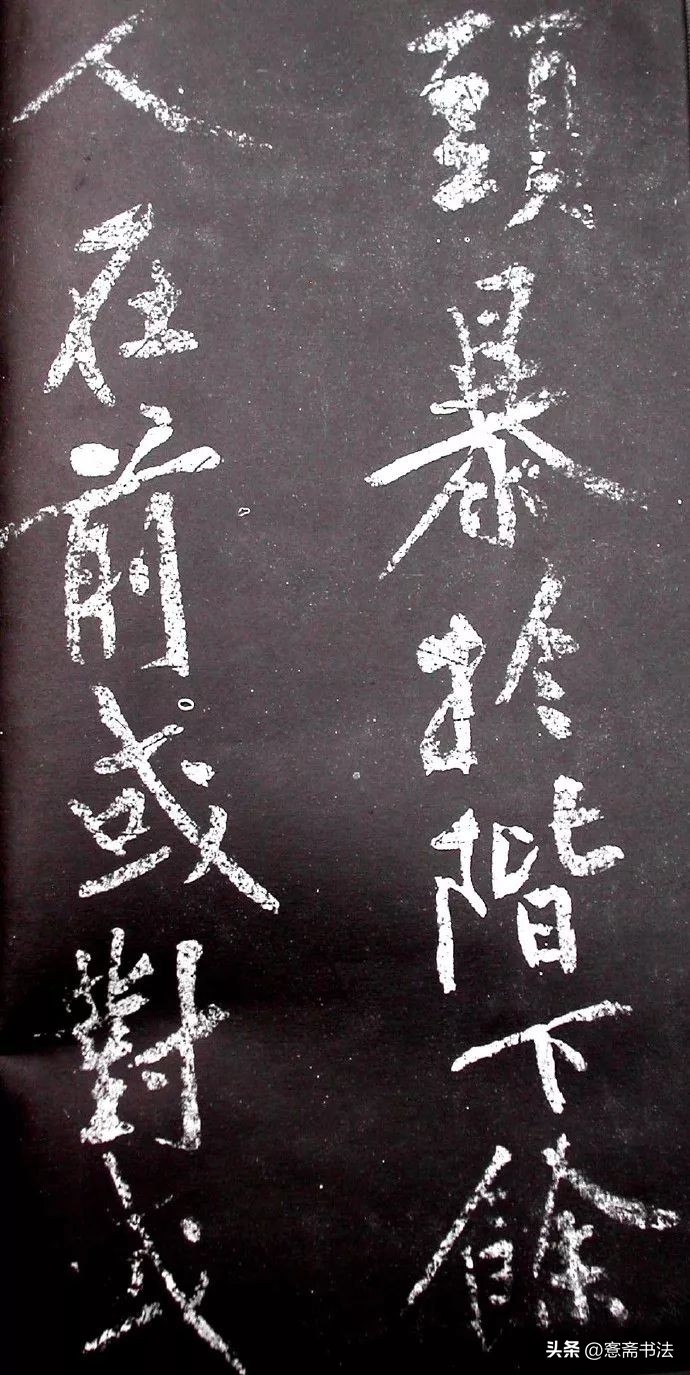 頭暴於階下餘
人在前或對或
头条@窓斋书法